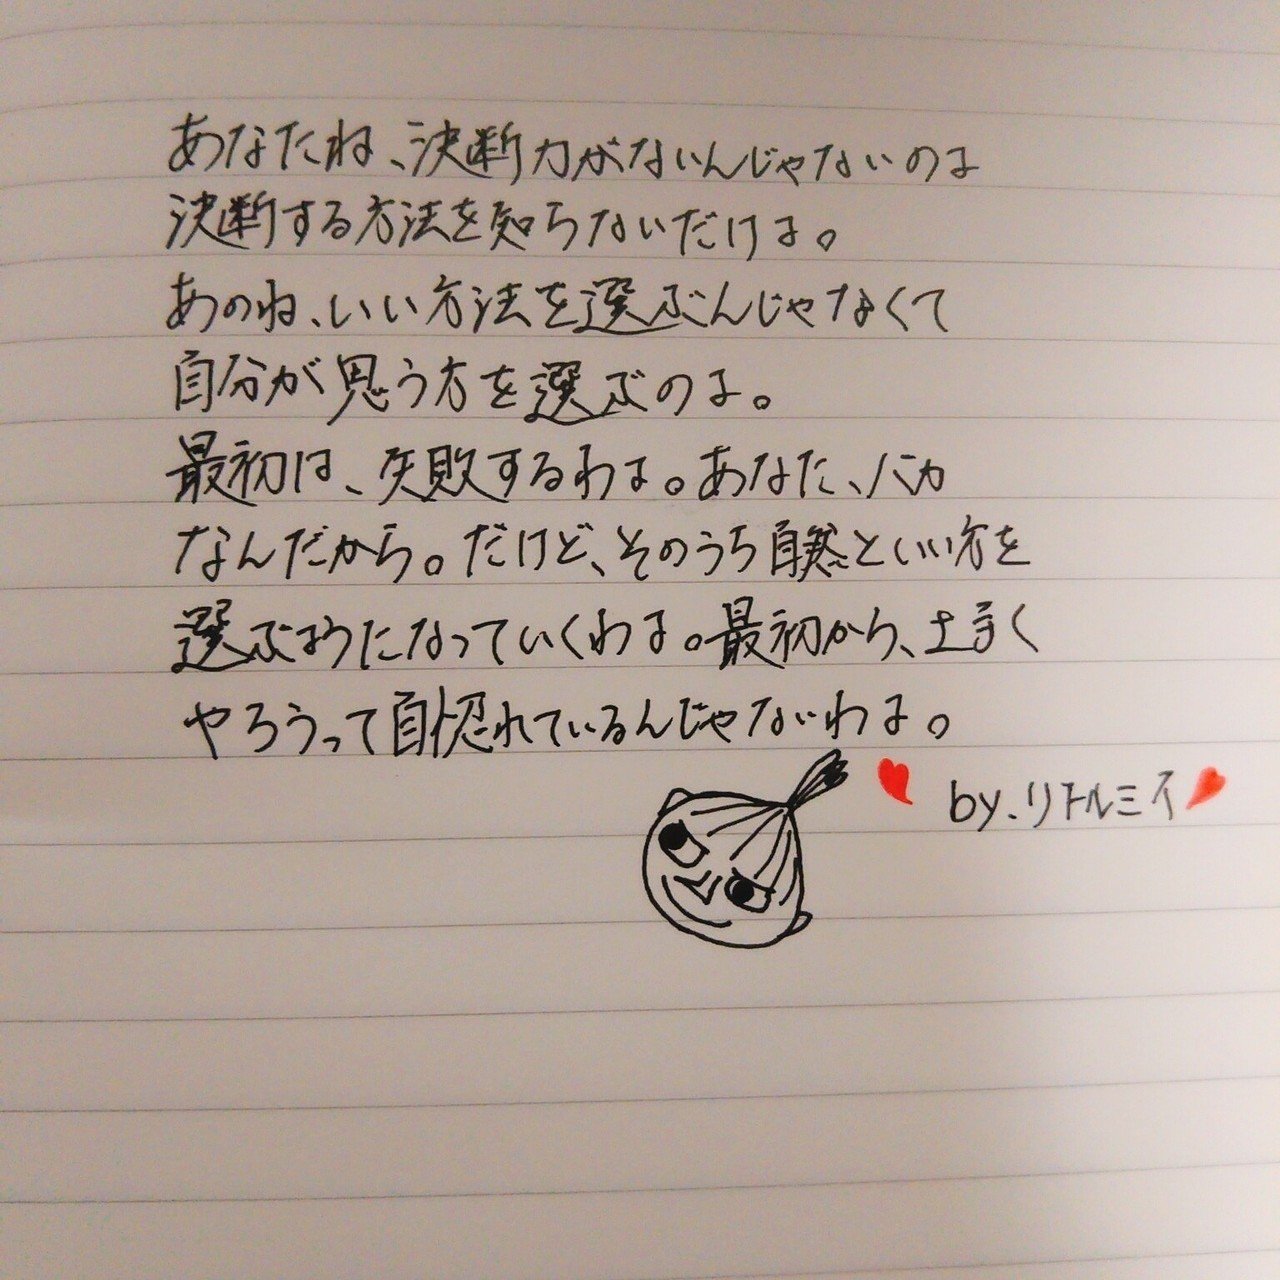 あなたね、決断力がないんじゃないのよ
決断する方法を知らないだけよ。
あのね、いい方法を選ぶんじゃなくて
自分が思う方を選ぶのよ。
最初は、失敗するわよ。あなた、バカ
なんだから。だけど、そのうち自然といい方を
選ぶようになっていくわよ。最初から、上手く
やろうって自惚れているんじゃないわよ。
by.リトルミイ